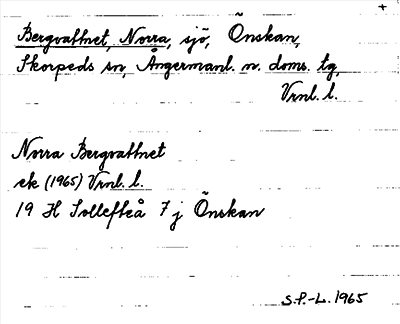 +
Bergvattnet, Norra, sjö, Önskan,
Skorpeds sn, Ångermanl. n. doms. tg,
Vrnl. l.
Norra Bergvattnet
ek (1965) Vrnl. l.
19 H Sollefteå 7 j Önskan
S.P.-L. 1965